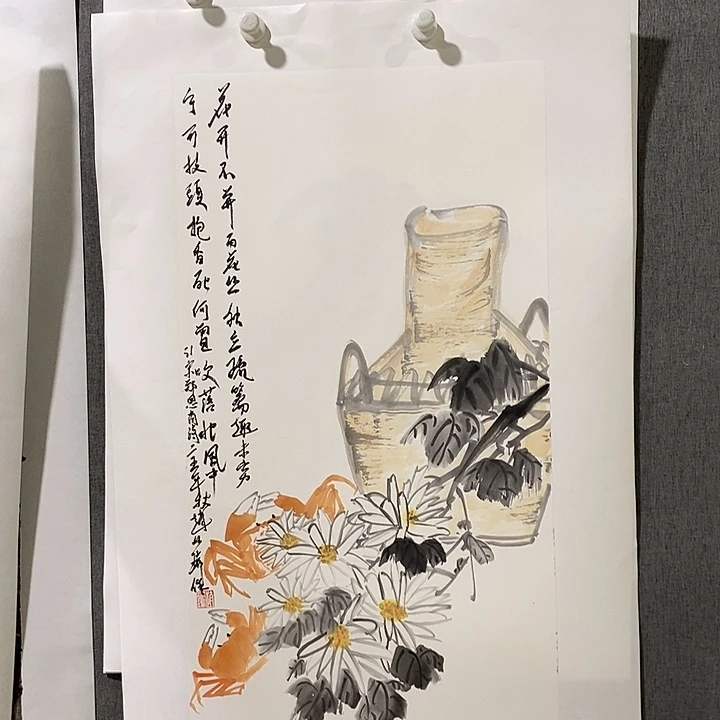 花开不并百花丛独立疏篱趣未穷
宁可枝頭抱香死何曾吹落北風中
引宋郑思肖诗